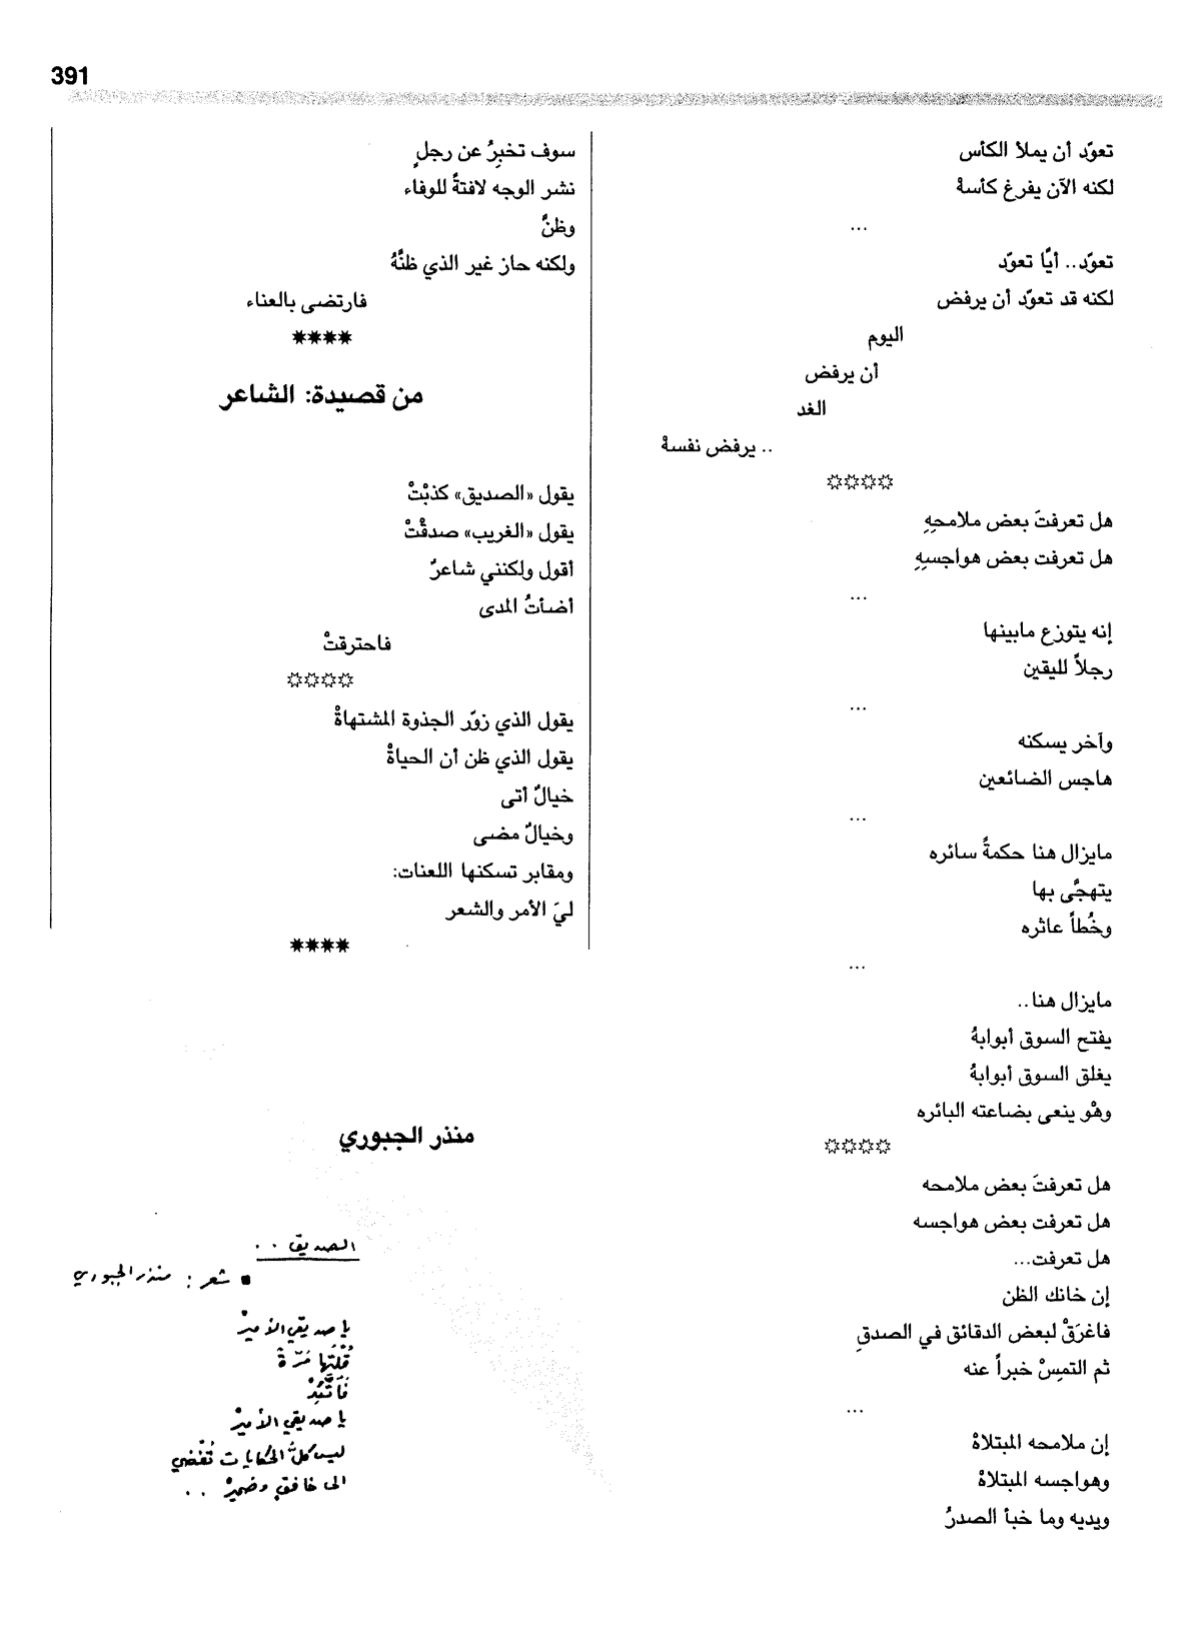 391
تعوّد أن يملأ الكأس
لكنه الآن يفرغ كأسهْ
...
تعوّد.. أيًا تعوّد
لكنه قد تعوّد أن يرفض
اليوم
أن يرفض
الغد
.. يرفض نفسهْ
☼☼☼☼
هل تعرفتَ بعض ملامحِهِ
هل تعرفت بعض هواجسِهِ
...
إنه يتوزع مابينها
رجلاً لليقين
...
وآخر يسكنه
هاجس الضائعين
...
مايزال هنا حكمةً سائره
يتهجَّى بها
وخُطاً عاثره
...
مايزال هنا..
يفتح السوق أبوابهُ
يغلق السوق أبوابهُ
وهْو ينعى بضاعته البائره
☼☼☼☼
هل تعرفتَ بعض ملامحه
هل تعرفت بعض هواجسه
هل تعرفت...
إن خانك الظن
فاغرَقْ لبعض الدقائق في الصدقِ
ثم التمِسْ خبراً عنه
...
إن ملامحه المبتلاهْ
وهواجسه المبتلاهْ
ويديه وما خبأ الصدرُ
سوف تخبِرُ عن رجلٍ
نشر الوجه لافتةً للوفاء
وظنَّ
ولكنه حاز غير الذي ظنَّهُ
فارتضى بالعناء
****
من قصيدة: الشاعر
يقول «الصديق» كذبْتْ
يقول «الغريب» صدقْتْ
أقول ولكنني شاعرٌ
أضأتُ المدى
فاحترقتْ
☼☼☼☼
يقول الذي زوّر الجذوة المشتهاهْ
يقول الذي ظن أن الحياهْ
خيالٌ أتى
وخيالٌ مضى
ومقابر تسكنها اللعنات:
ليَ الأمر والشعر
****
منذر الجبوري
الصديق ..
▪ شعر: منذر الجبوري
يا صديقي الأميرْ
قُلْتُها مَرّةً
فَاتَّئِدْ
يا صديقي الأميرْ
ليس كلُّ الحكايات تُفْضي
الى خافقٍ وضميرْ ..